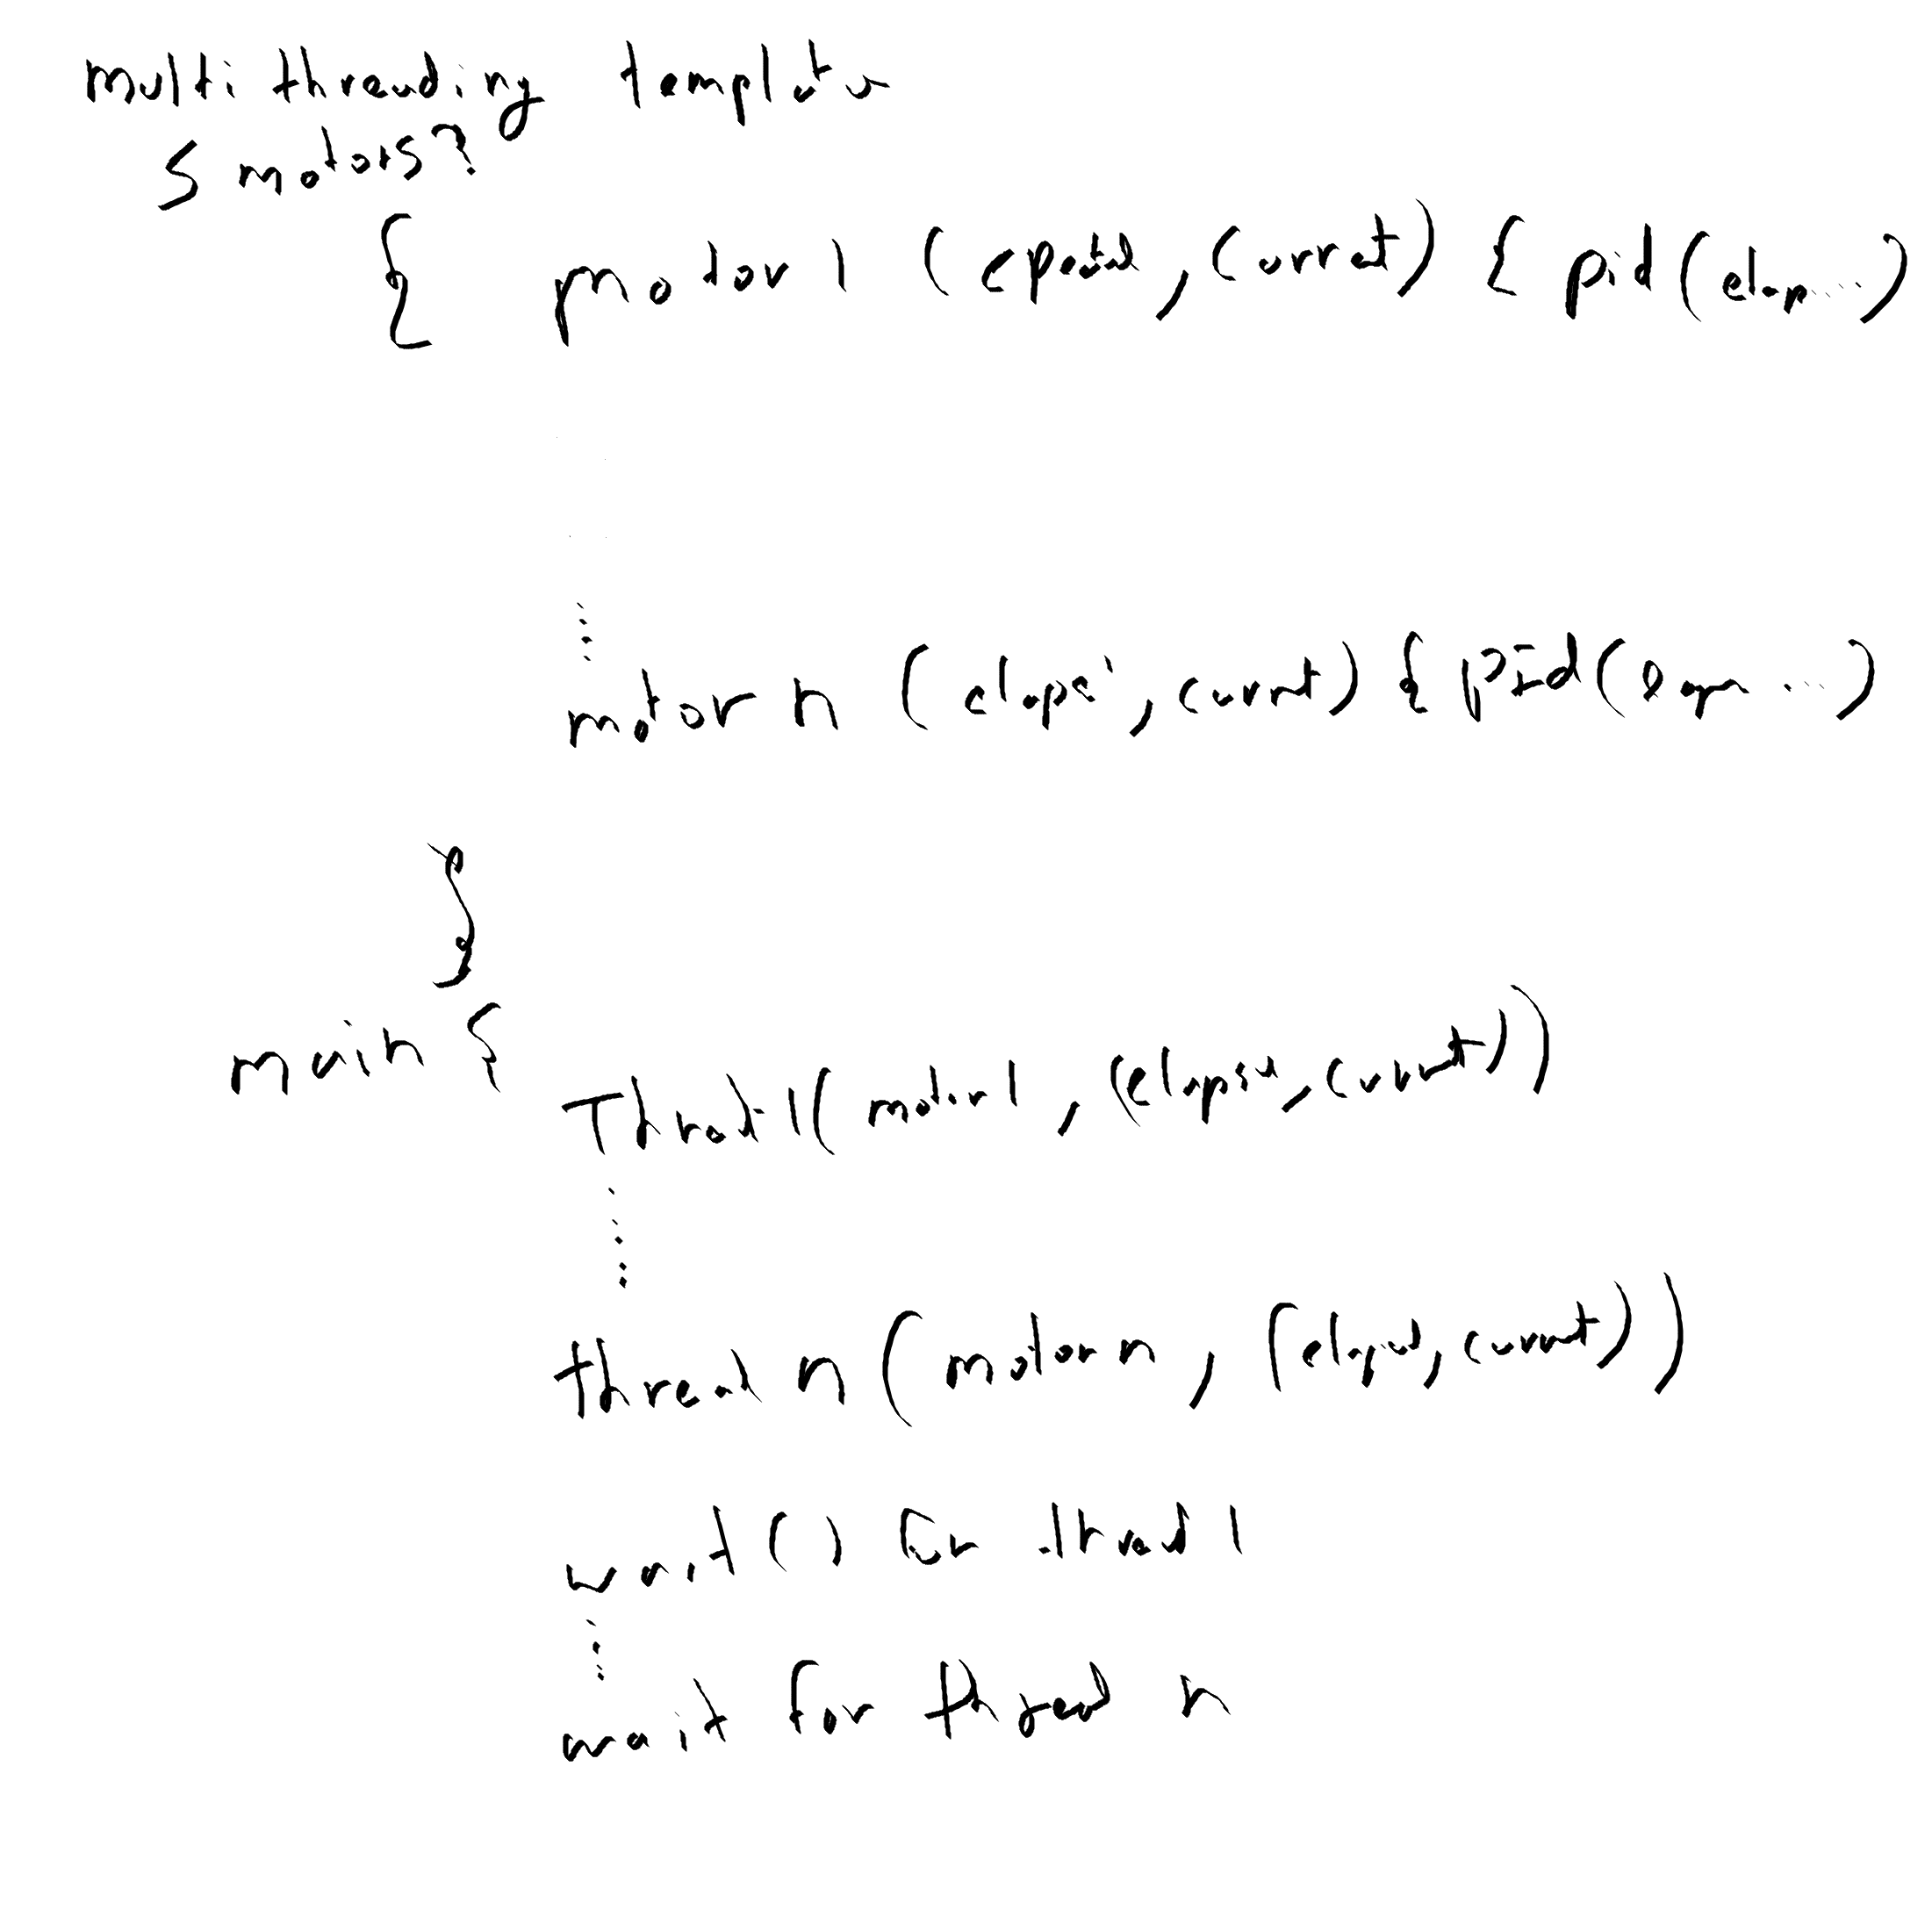 multi threading template
5 motors?
{ motor 1 (elapsed, current) { pid(elap....)
motor n (elapse, current) { pid(elap....)
}
main {
Thread 1 (motor 1, (elapsed, current))
thread n (motor n, (elapsed, current))
wait() for thread 1
wait for thread n